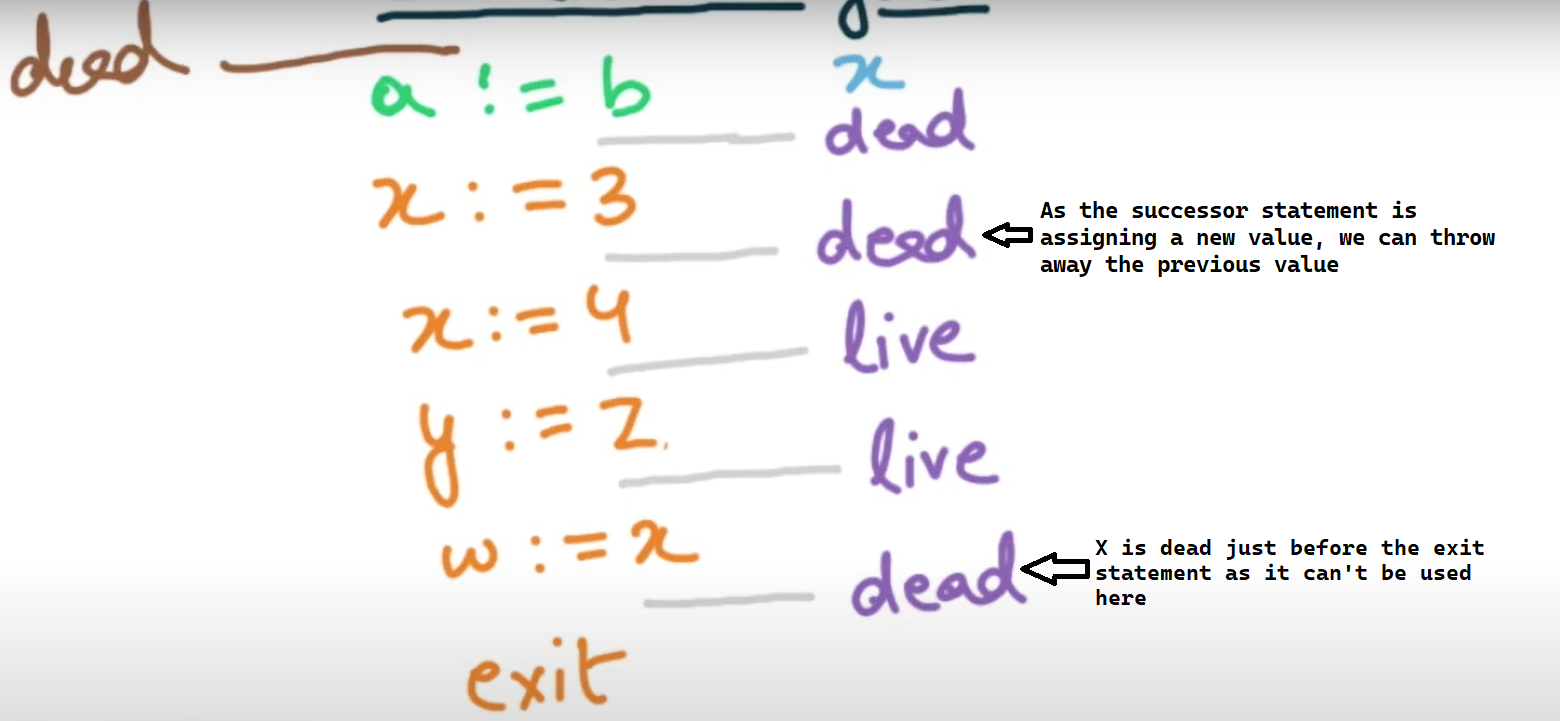 dead
a := b
x
dead
x := 3
dead
As the successor statement is
assigning a new value, we can throw
away the previous value
x := 4
live
y := z
live
w := x
dead
X is dead just before the exit
statement as it can't be used
here
exit